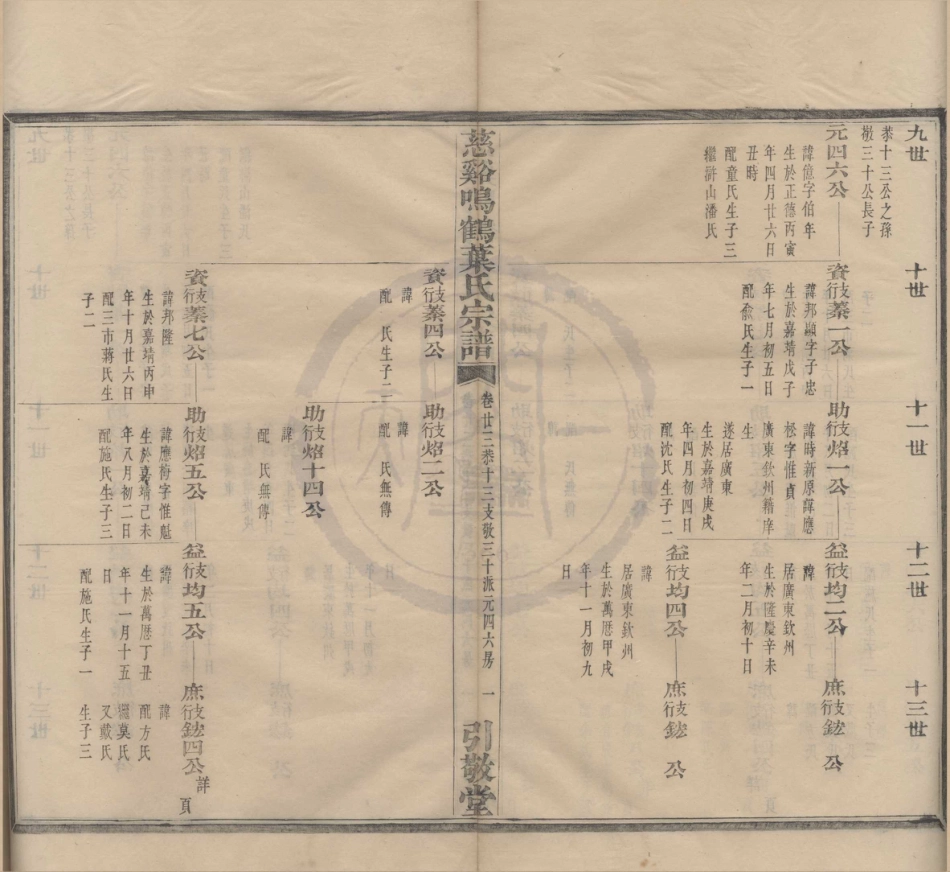 九世
十世
十一世
十二世
十三世
恭十三公之孫
敬三十公長子
元四六公
諱億字伯年
生於正德丙寅
年四月廿六日
丑時
配童氏生子三
繼滸山潘氏
資行支蓁一公
諱邦顯字子忠
生於嘉靖戊子
年七月初五日
配俞氏生子一
助行支熖一公
諱時新原諱應
松字惟貞
廣東欽州籍庠
生
遂居廣東
生於嘉靖庚戌
年四月初四日
配沈氏生子二
益行支均二公
諱
居廣東欽州
生於隆慶辛未
年二月初十日
庶行支鋐 公
益行支均四公
諱
居廣東欽州
生於萬厯甲戌
年十一月初九
日
庶行支鋐 公
慈谿鳴鶴葉氏宗譜
卷廿三恭十三支敬三十派元四六房 一
引敬堂
資行支蓁四公
諱
配 氏生子二
助行支熖二公
諱
配 氏無傳
助行支熖十四公
諱
配 氏無傳
資行支蓁七公
諱邦隆
生於嘉靖丙申
年十月廿六日
配三市蔣氏生
子二
助行支熖五公
諱應衡字惟魁
生於嘉靖己未
年八月初二日
配施氏生子三
益行支均五公
諱
生於萬厯丁丑
年十一月十五
日
配施氏生子一
庶行支鋐四公 詳 頁
諱
配方氏
繼莫氏
又戴氏
生子三